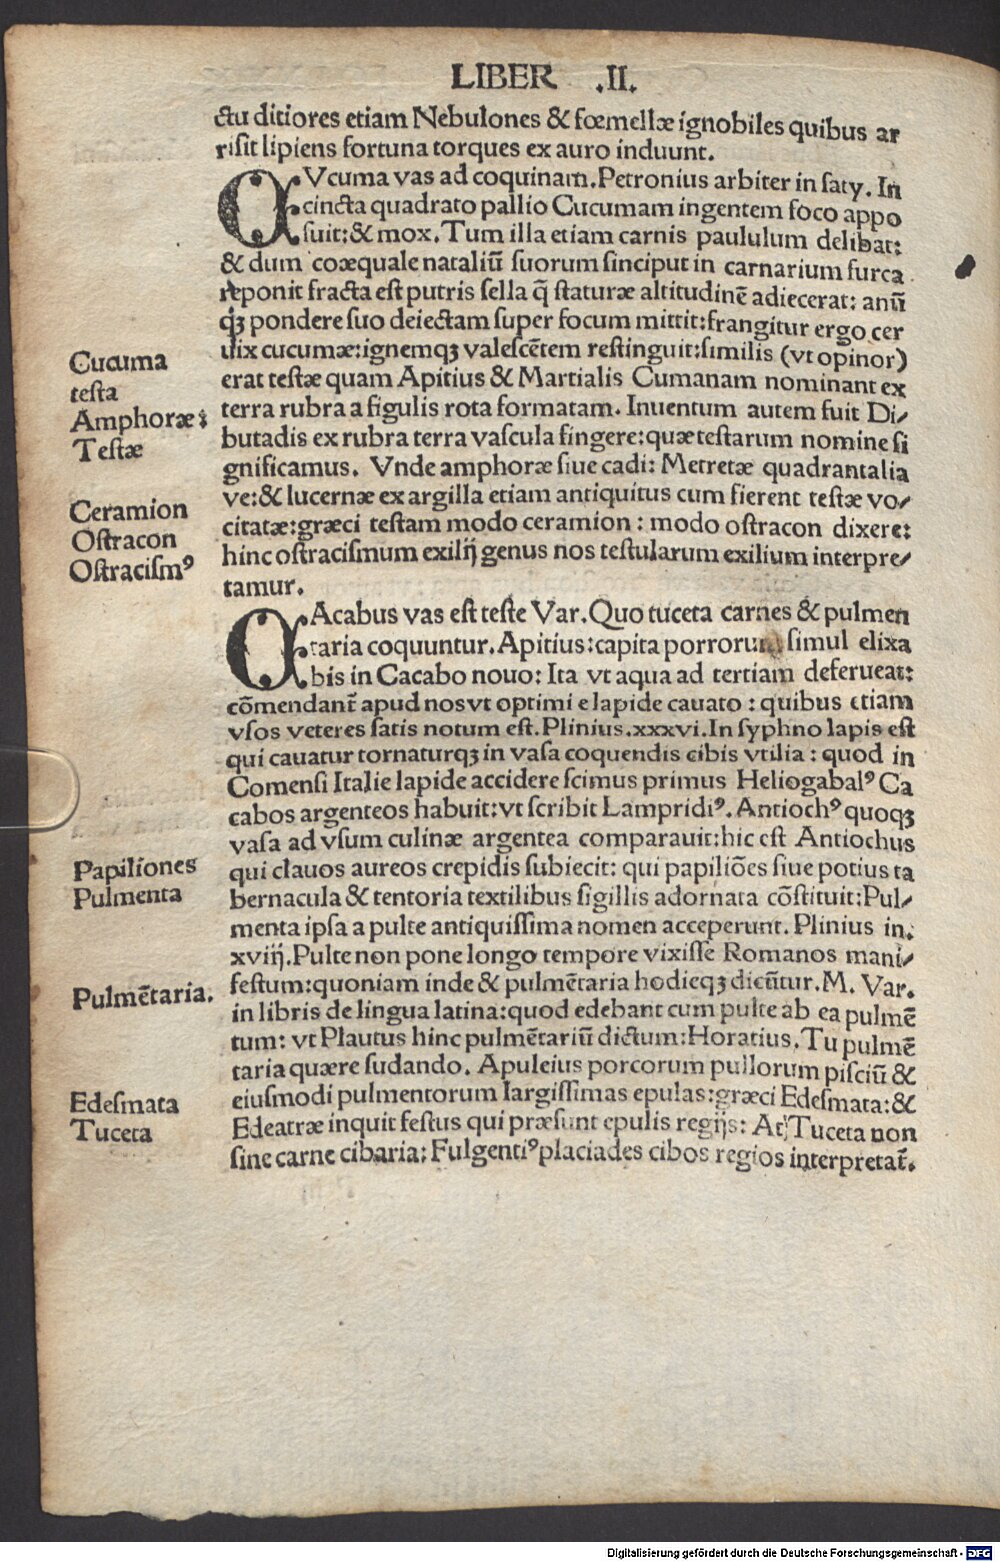 LIBER .II.
ctu ditiores etiam Nebulones & fœmellæ ignobiles quibus ar
risit lipiens fortuna torques ex auro induunt.
CVcuma vas ad coquinam. Petronius arbiter in saty. In
cincta quadrato pallio Cucumam ingentem foco appo
suit: & mox. Tum illa etiam carnis paululum delibat:
& dum coæquale nataliū suorum sinciput in carnarium furca
reponit fracta est putris sella q̄ staturæ altitudinē adiecerat: anū
qꝫ pondere suo deiectam super focum mittit: frangitur ergo cer
uix cucumæ: ignemqꝫ valescētem restinguit: similis (vt opinor)
Cucuma
erat testæ quam Apitius & Martialis Cumanam nominant ex
testa
terra rubra a figulis rota formatam. Inuentum autem fuit Di/
Amphoræ:
butadis ex rubra terra vascula fingere: quæ testarum nomine si
Testæ
gnificamus. Vnde amphoræ siue cadi: Metretæ quadrantalia
ve: & lucernæ ex argilla etiam antiquitus cum fierent testæ vo/
Ceramion
citatæ: græci testam modo ceramion : modo ostracon dixere:
Ostracon
hinc ostracismum exilij genus nos testularum exilium interpre/
Ostracismꝰ
tamur.
CAcabus vas est teste Var. Quo tuceta carnes & pulmen
taria coquuntur. Apitius: capita porrorum simul elixa
bis in Cacabo nouo: Ita vt aqua ad tertiam deferueat:
cōmendant̄ apud nos vt optimi e lapide cauato : quibus etiam
vsos veteres satis notum est. Plinius. xxxvi. In syphno lapis est
qui cauatur tornaturqꝫ in vasa coquendis cibis vtilia : quod in
Comensi Italie lapide accidere scimus primus Heliogabalꝰ Ca
cabos argenteos habuit: vt scribit Lampridiꝰ. Antiochꝰ quoqꝫ
vasa ad vsum culinæ argentea comparauit: hic est Antiochus
qui clauos aureos crepidis subiecit: qui papiliōes siue potius ta
Papiliones
bernacula & tentoria textilibus sigillis adornata cōstituit: Pul/
Pulmenta
menta ipsa a pulte antiquissima nomen acceperunt. Plinius in.
xviij. Pulte non pone longo tempore vixisse Romanos mani/
festum: quoniam inde & pulmētaria hodieqꝫ dicūtur. M. Var.
Pulmētaria.
in libris de lingua latina: quod edebant cum pulte ab ea pulmē
tum: vt Plautus hinc pulmētariū dictum: Horatius. Tu pulmē
taria quære sudando. Apuleius porcorum pullorum pisciū &
eiusmodi pulmentorum largissimas epulas: græci Edesmata: &
Edesmata
Edeatræ inquit festus qui præsunt epulis regijs: At Tuceta non
Tuceta
sine carne cibaria: Fulgentiꝰ placiades cibos regios interpretat̄.
Digitalisierung gefördert durch die Deutsche Forschungsgemeinschaft - DFG